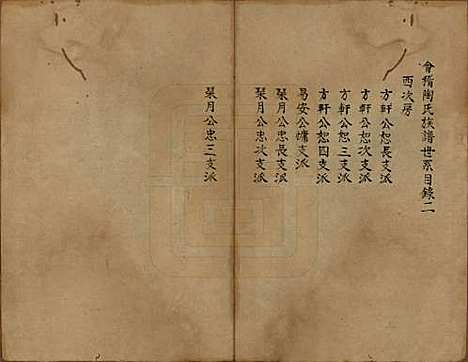 會稽陶氏族譜世系目錄二
西次房
方軒公恕長支派
方軒公恕次支派
方軒公恕三支派
方軒公恕四支派
易安公慵支派
琹月公忠長支派
琹月公忠次支派
琹月公忠三支派